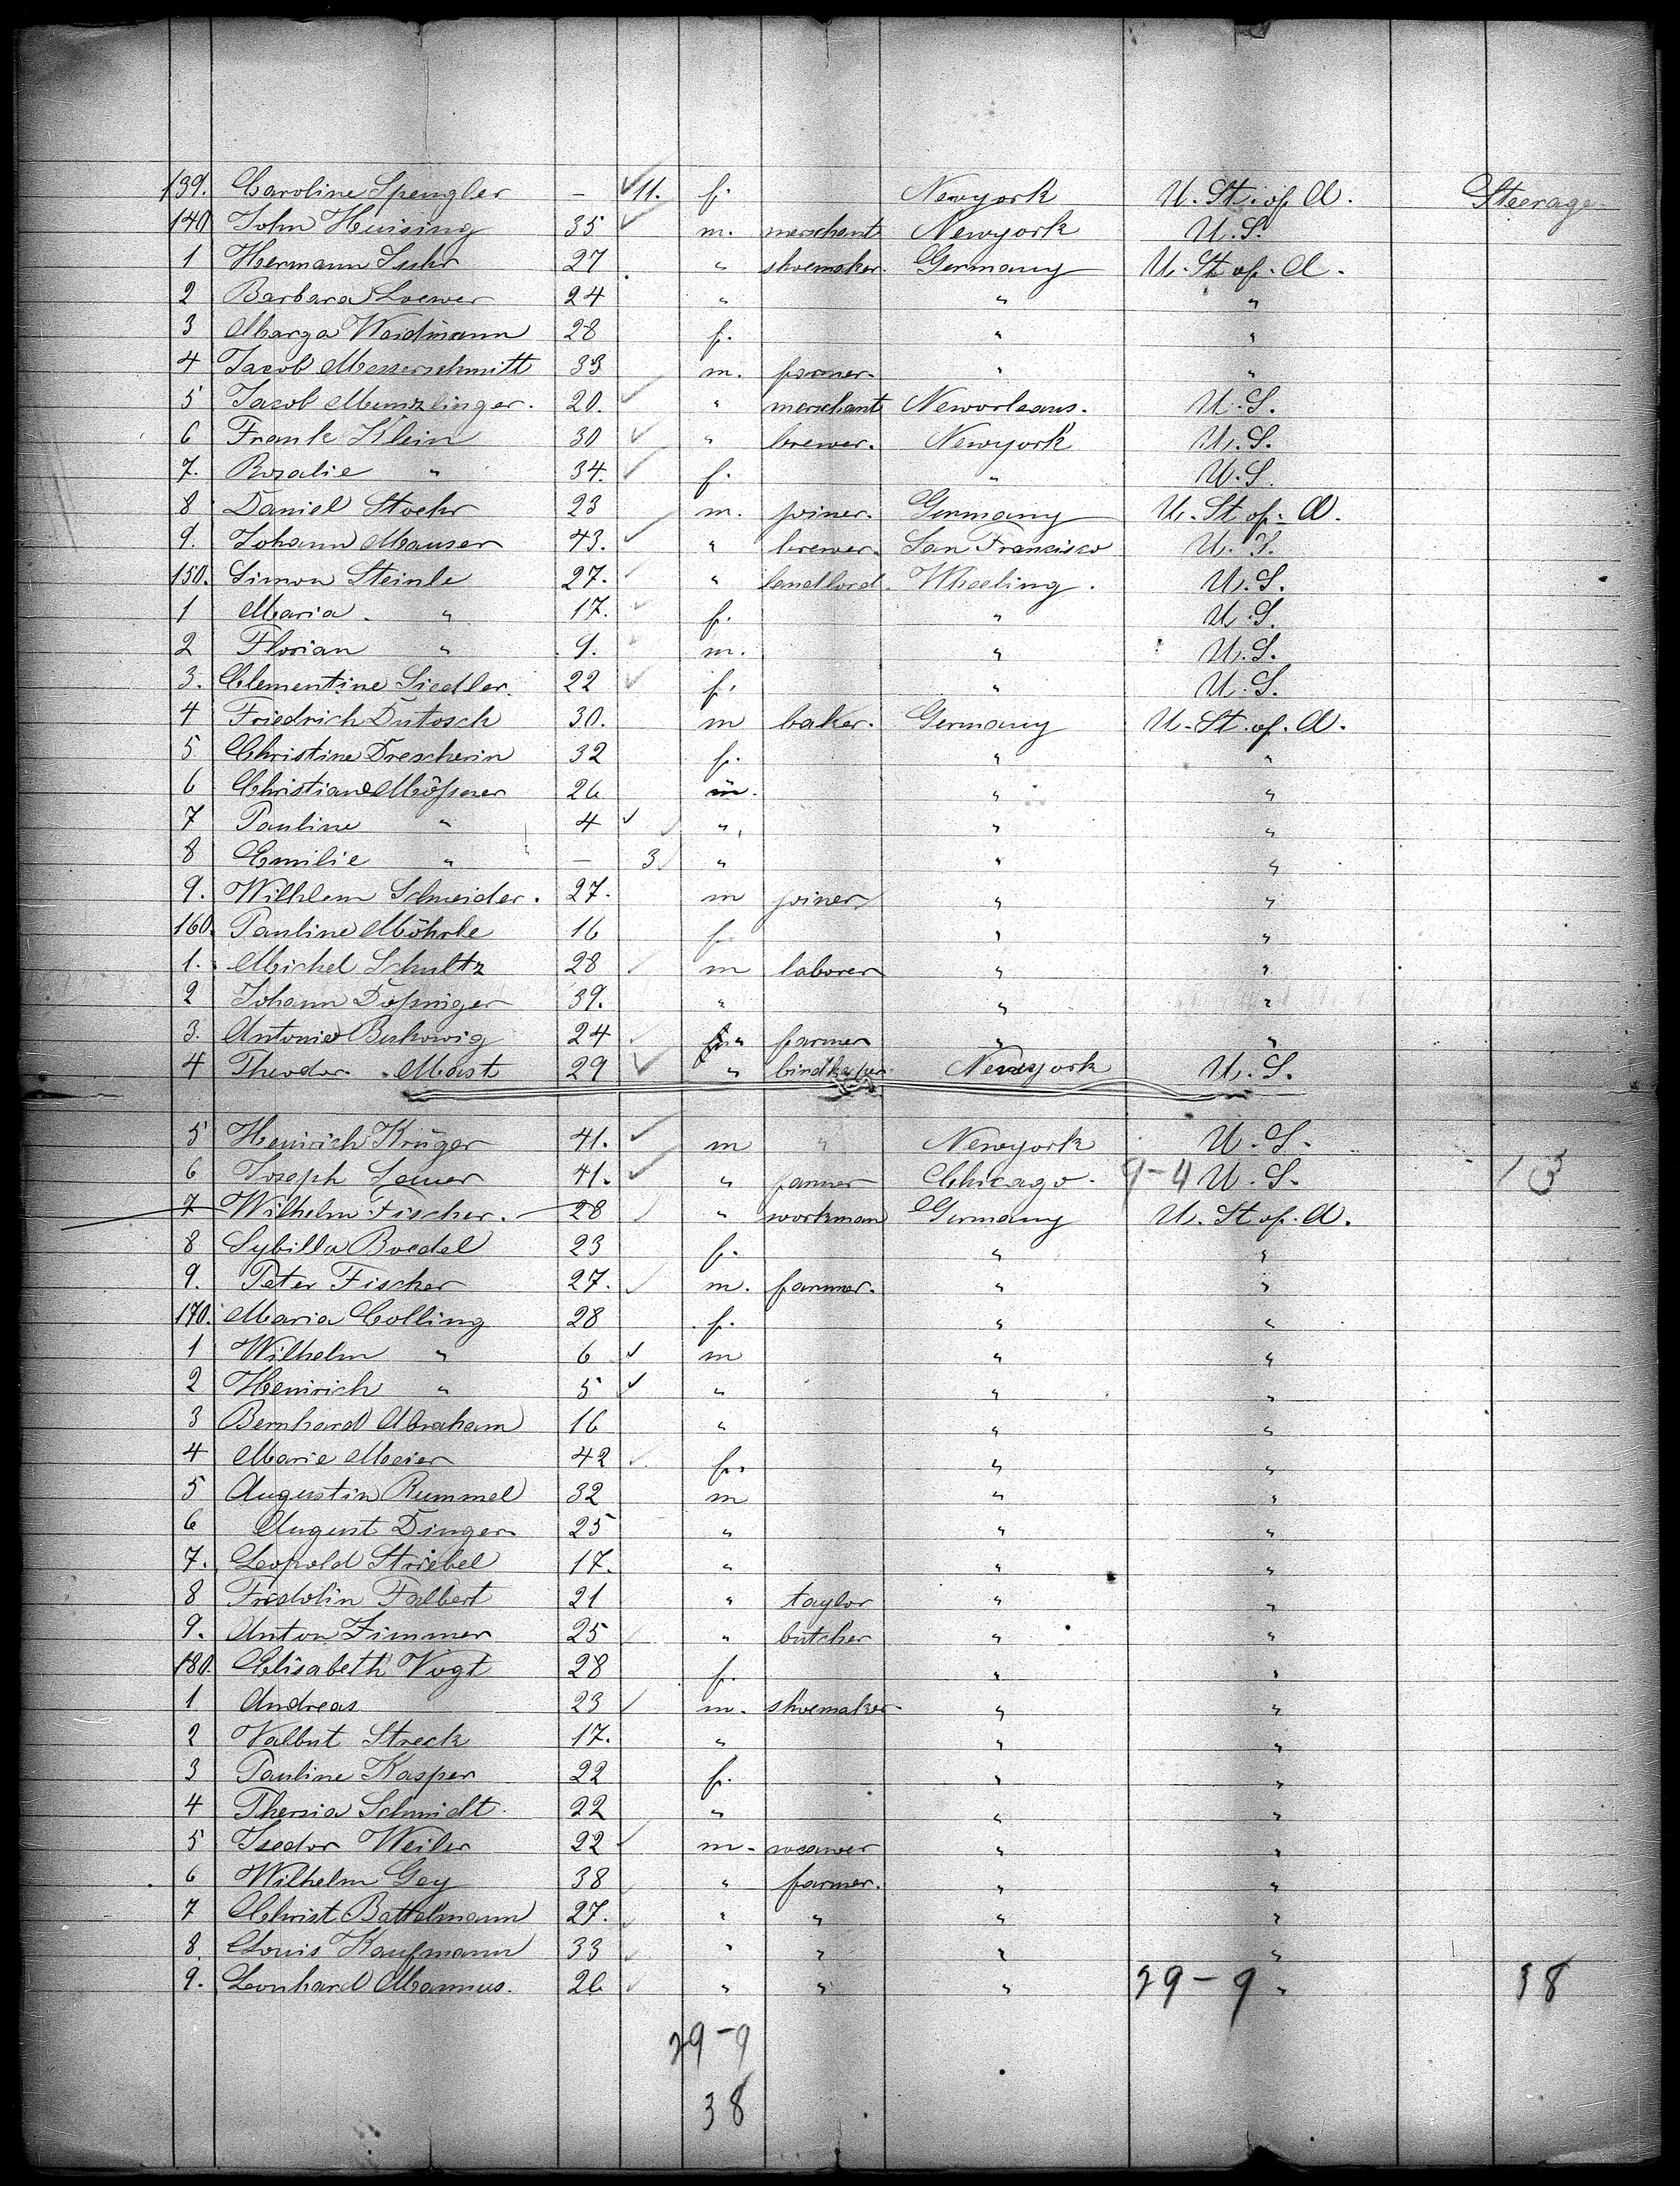 139. Caroline Spengler — 11. f. Newyork U. St. of A. Steerage.
140 John Huising 35 m. merschant Newyork U. S.
1 Hermann Suhr 27 " shoemaker. Germany U. St. of. A.
2 Barbara Loewer 24 " " "
3 Marga Weidmann 28 f. " "
4 Jacob Messerschmitt 33 m. farmer. " "
5 Jacob Munzlinger. 20. " merschant Neworleans. U. S.
6 Frank Klein 30 " brewer. Newyork U. S.
7. Rosalie " 34. f. " U. S.
8 Daniel Stoehr 23 m. joiner. Germany U. St. of. A.
9. Johann Mauser 43. " brewer. San Franzisko U. S.
150. Simon Steinle 27. " landlord. Wheeling. U. S.
1 Maria. " 17. f. " U. S.
2 Florian " 9. m. " U. S.
3. Clementine Siedler. 22 f. " U. S.
4 Friedrich Dutosch 30. m baker. Germany U. St. of. A.
5 Christine Drescherin 32 f. " "
6 Christiane Mößner 26 m. " "
7 Pauline " 4 " " "
8 Emilie " — 3 " " "
9. Wilhlem Schneider. 27. m joiner " "
160. Pauline Möhrle 16 f. " "
1. Michel Schultz 28 m laborer " "
2 Johann 39. " " "
3. Antonie 24 " farmer " "
4 Theodor. Mast 29 " Newyork U. S.
5 Heinrich Krüger 41. m " Newyork U. S.
6 Joseph 41. " farmer Chicago. 9-4 U. S. 13
7 Wilhelm Fischer. 28 " workman Germany U. St. of. A.
8 Sybilla Boedel 23 f. " "
9. Peter Fischer 27. m. farmer. " "
170. Maria Colling 28 f. " "
1 Wilhelm " 6 m " "
2 Heinrich " 5 " " "
3 Bernhard Abraham 16 " " "
4 Marie Meier 42 f. " "
5 Augustin Rummel 32 m " "
6 August Dinger 25 " " "
7. Leopold Striebel 17. " " "
8 Fridolin Falbert 21 " taylor " "
9. Anton Zimmer 25 " butcher " "
180. Elisabeth Vogt 28 f. " "
1 Andreas 23 m. shoemaker " "
2 Streck 17. " " "
3 Pauline Kasper 22 f. " "
4 Thersia Schmidt. 22 " " "
5 Isedor Weiler 22 m. " "
6 Wilhelm Gey 38 " farmer. " "
7 Christ Battelmann 27. " " " "
8. Louis Kaufmann 33 " " " "
9. Leonhard Mannus. 26 " " " 29-9 " 38
29-9
38